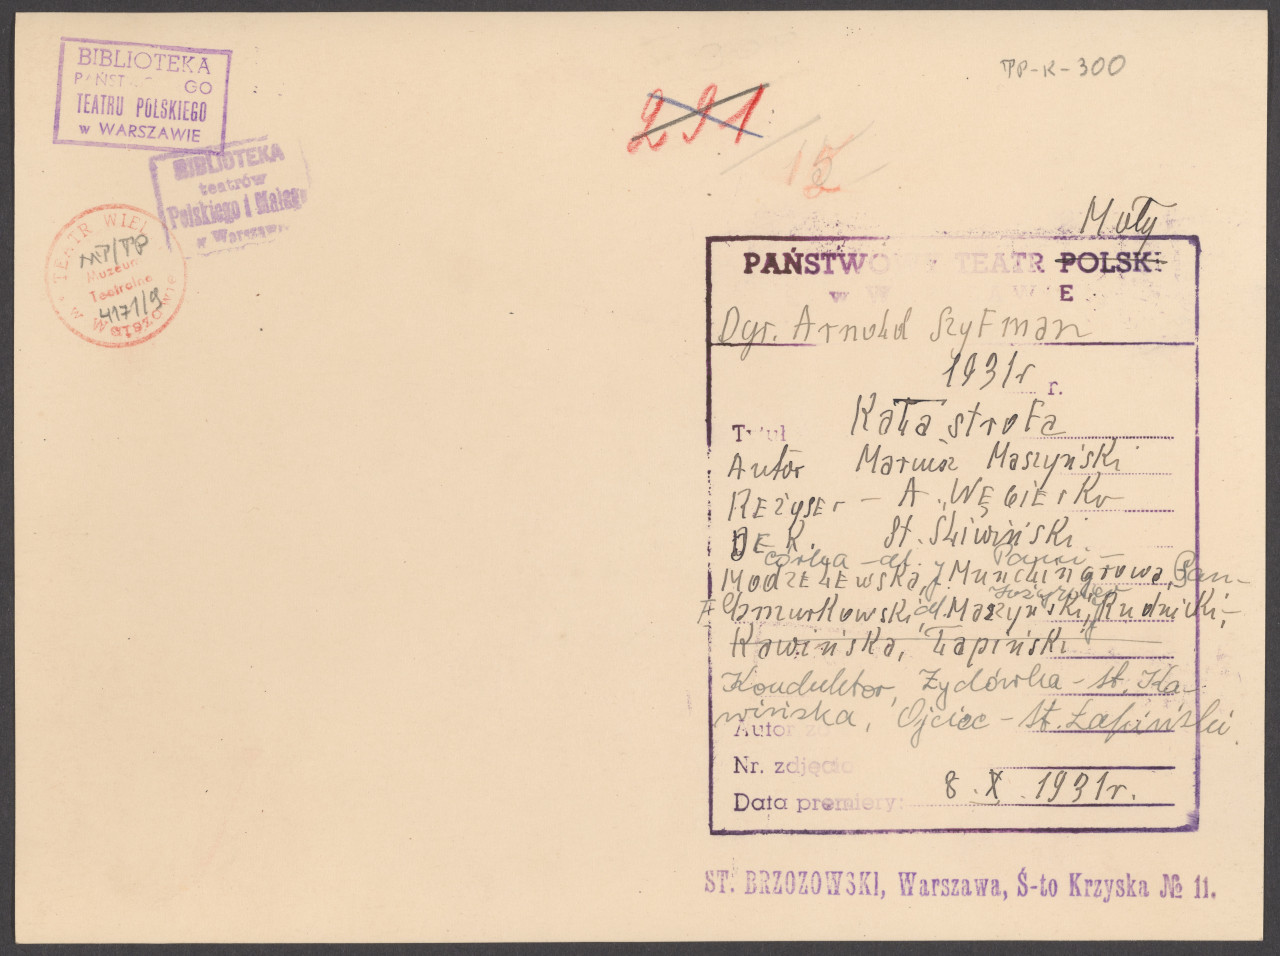 BIBLIOTEKA
PAŃST GO
TEATRU POLSKIEGO
w WARSZAWIE
BIBLIOTEKA
teatrów
Polskiego i Małego
w Warszawie
TEATR WIEL
MT/TP
Muzeum
Teatralne
4171/9
w Warszawie
TP-K-300
291
15
Mały
PAŃSTWOWY TEATR POLSKI
w W A W E
Dyr. Arnold Szyfman
1931r r.
Tytuł Katastrofa
Autor Mariusz Maszyński
Reżyser - A. Węgierko
DEK. St. Śliwiński
córka - st.
Modzelewska, J. Munclingrowa, Pan-
Chmurkowski, Maszyński, Rudnicki,
Kawińska, Łapiński
Konduktor, Żydówka - st. Ka-
wińska, Ojciec - st. Łapiński.
Autor
Nr. zdjęcia
Data premiery: 8.X.1931r.
ST. BRZOZOWSKI, Warszawa, Ś-to Krzyska № 11.